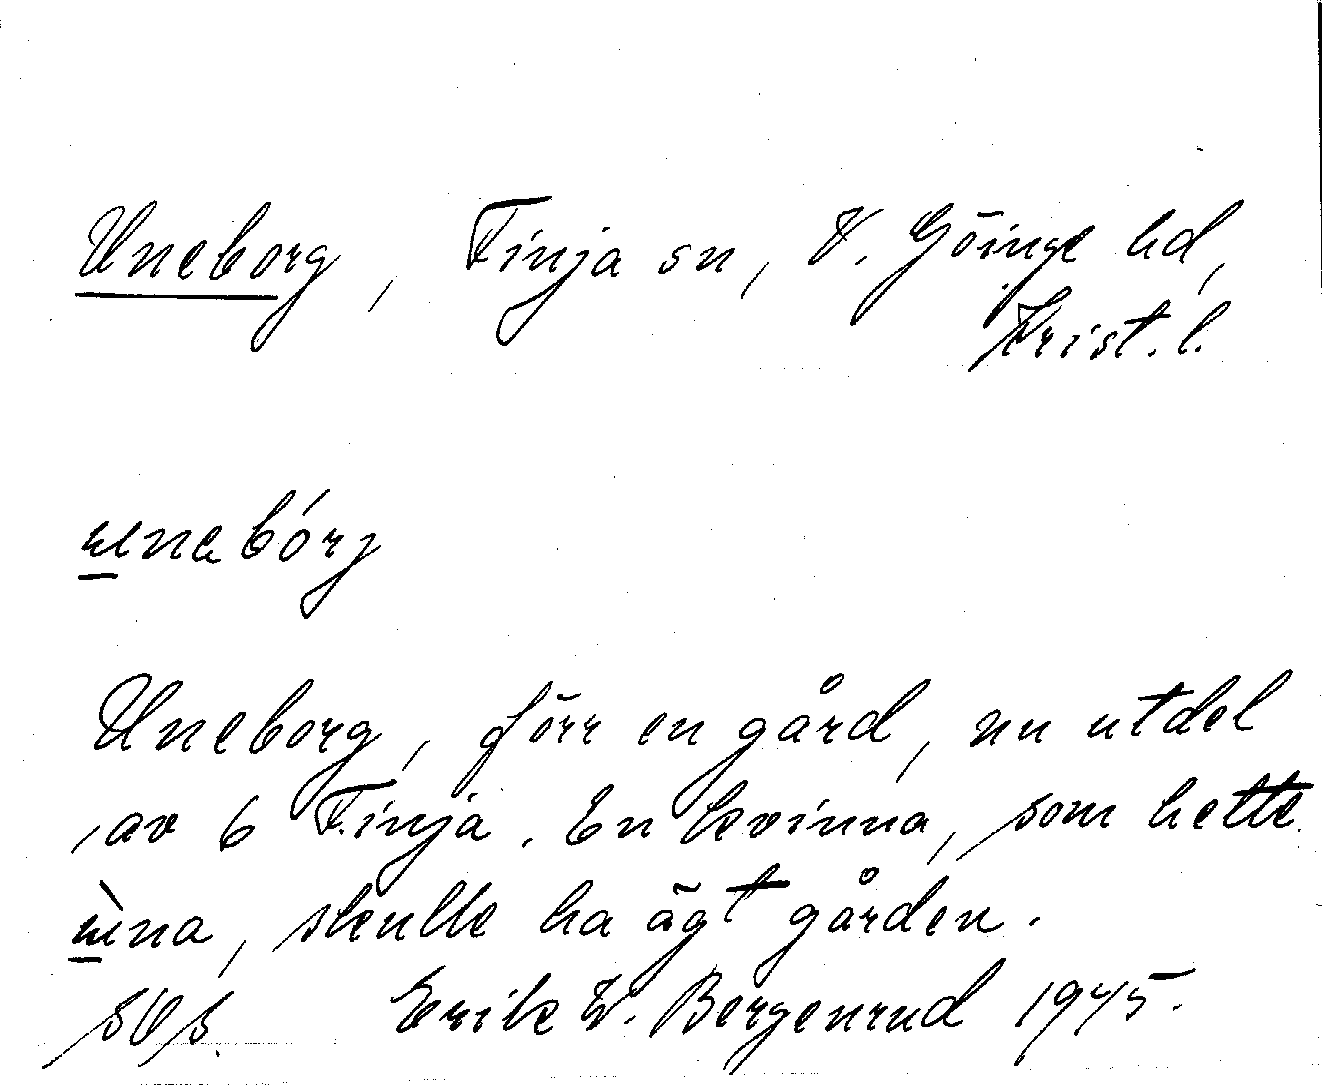 Uneborg, Finja sn, V. Göinge hd,
Krist. l.
unabórj
Uneborg, förr en gård, nu utdel
av 6 Finja. En kvinna, som hette
ùna, skulle ha ägt gården.
Erik W. Bergenrud 1945.